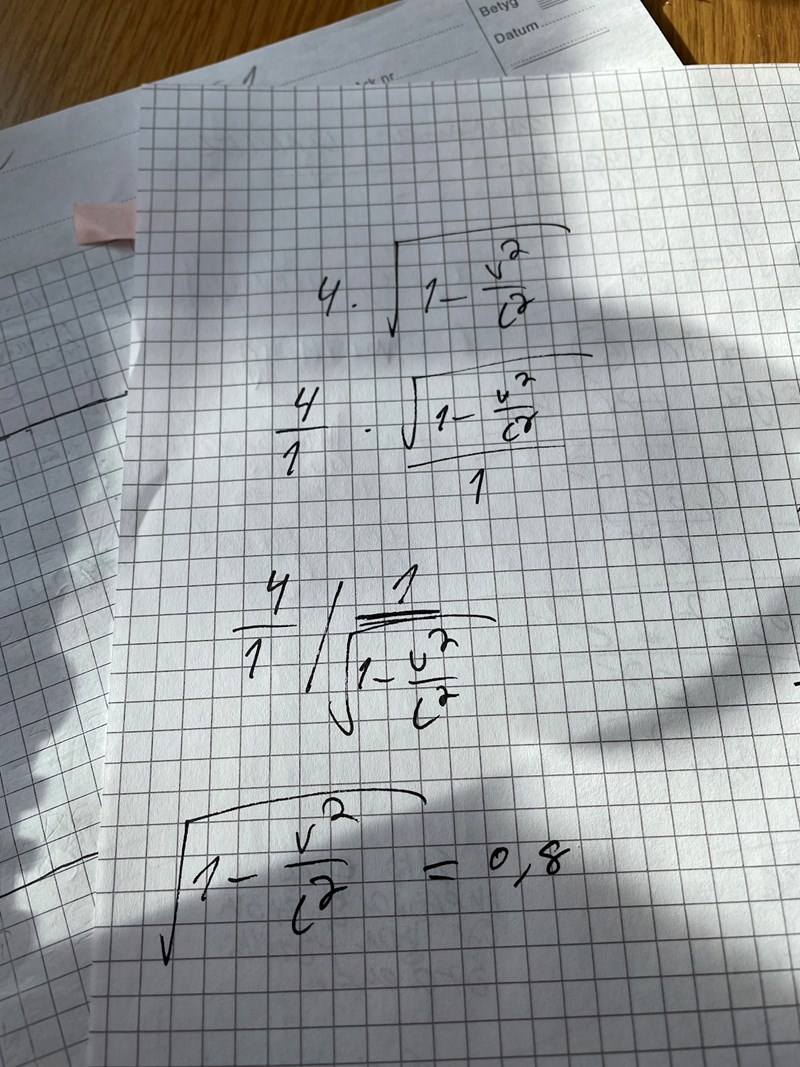 Betyg
Datum
4 · √(1 - v²/c²)
4/1 · √(1 - v²/c²)/1
4/1 / 1/√(1 - v²/c²)
√(1 - v²/c²) = 0,8